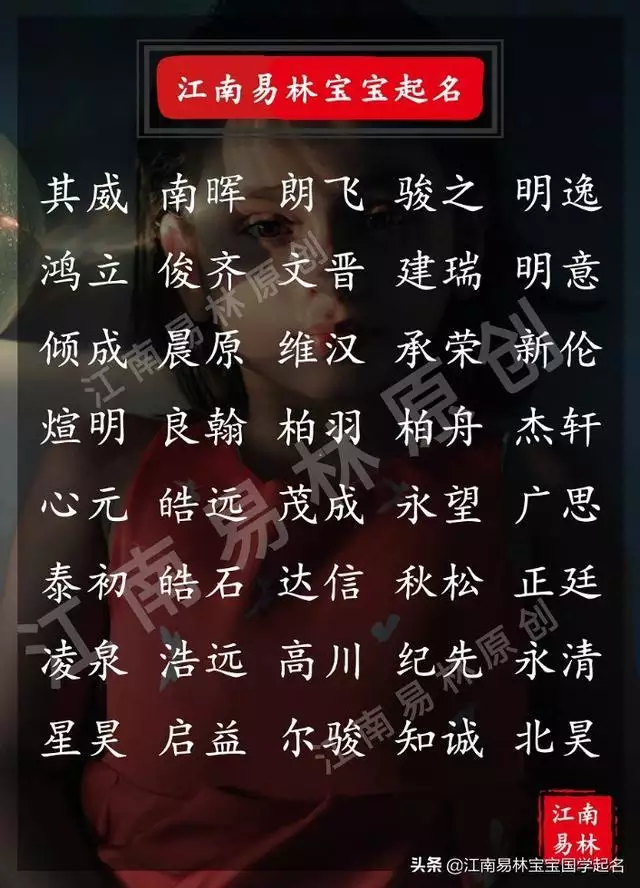 江南易林宝宝起名
其威 南晖 朗飞 骏之 明逸
鸿立 俊齐 文晋 建瑞 明意
倾成 晨原 维汉 承荣 新伦
煊明 良翰 柏羽 柏舟 杰轩
心元 皓远 茂成 永望 广思
泰初 皓石 达信 秋松 正廷
凌泉 浩远 高川 纪先 永清
星昊 启益 尔骏 知诚 北昊
江南易林原创
江南易林原创
江南易林原创
江南
易林
头条 @江南易林宝宝国学起名